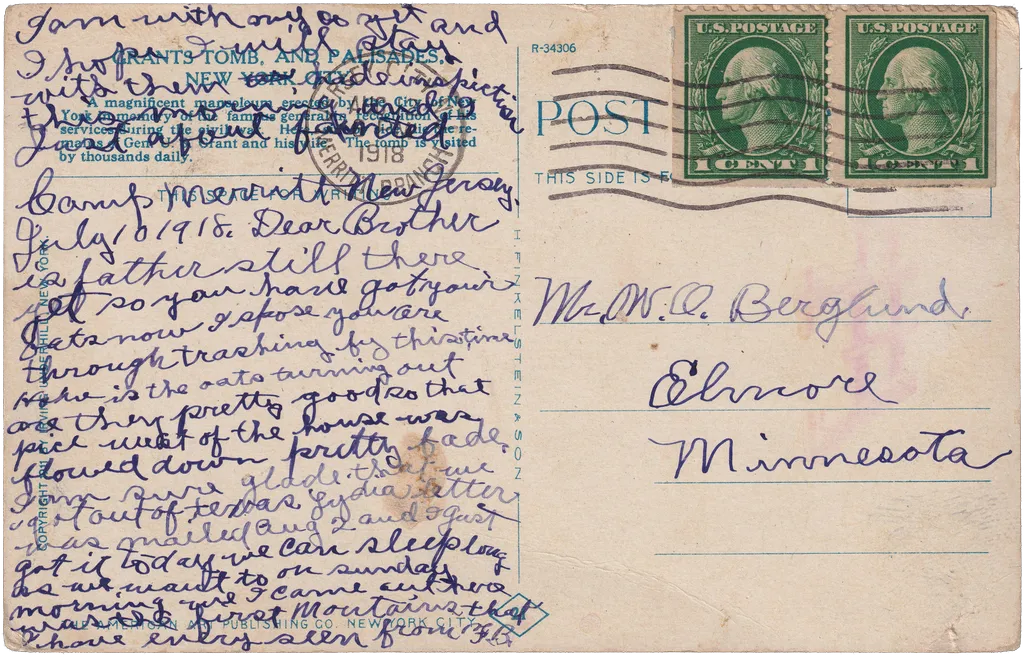 I am with my co yet and
I hope I will stay
with them inspiction
this
Just about fainted
GRANTS TOMB, AND PALISADES,
NEW YORK CITY.
A magnificent mausoleum erected by the City of New
York in memory of the famous general in recognition of his
services during the civil war.
mains of General Grant and his wife. The tomb is visited
by thousands daily.
THIS SPACE FOR WRITING
Camp Merritt New Jersey.
July 10 1918. Dear Brother
is father still there
yet so you have got your
oats now I spose you are
through trashing by this time
how is the oats turning out
are they pretty good so that
pice west of the house was
flowed down pretty bade.
I am sure glade that we
got out of texas Lydia letter
was mailed Aug 2 and I gust
got it today we can sleep long
as we want to on sunday
morning we I came out here
was the first Mountains that
I have every seen from F.B.
COPYRIGHT 1915 BY IRVING UNDERHILL, NEW YORK.
THE AMERICAN ART PUBLISHING CO. NEW YORK CITY
H FINKELSTEIN & SON
MERRITT BRANCH
1918
R-34306
POST
THIS SIDE IS F
U.S. POSTAGE
1 CENT 1
U.S. POSTAGE
1 CENT 1
Mr. W. O. Berglund.
Elmore
Minnesota